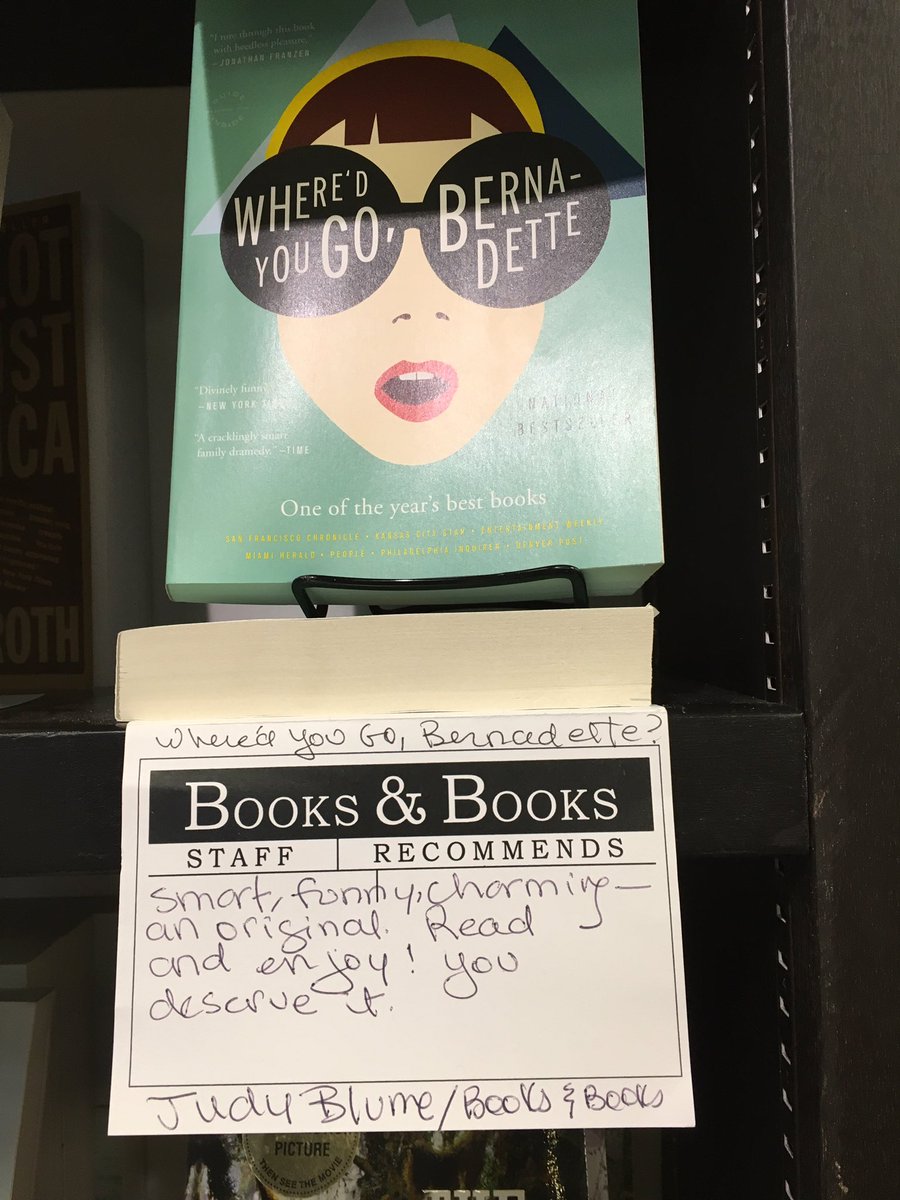 "I tore through this book
with heedless pleasure."
—JONATHAN FRANZEN
WHERE'D
YOU GO,
BERNA-
DETTE
"Divinely funny."
—NEW YORK TIMES
"A cracklingly smart
family dramedy." —TIME
NATIONAL
BESTSELLER
One of the year's best books
SAN FRANCISCO CHRONICLE • KANSAS CITY STAR • ENTERTAINMENT WEEKLY
MIAMI HERALD • PEOPLE • PHILADELPHIA INQUIRER • DENVER POST
LOT
ST
CA
ROTH
Where'd you Go, Bernadette?
BOOKS & BOOKS
STAFF RECOMMENDS
smart, funny, charming—
an original. Read
and enjoy! you
deserve it.
Judy Blume/Books & Books
PICTURE
THEN SEE THE MOVIE
THE